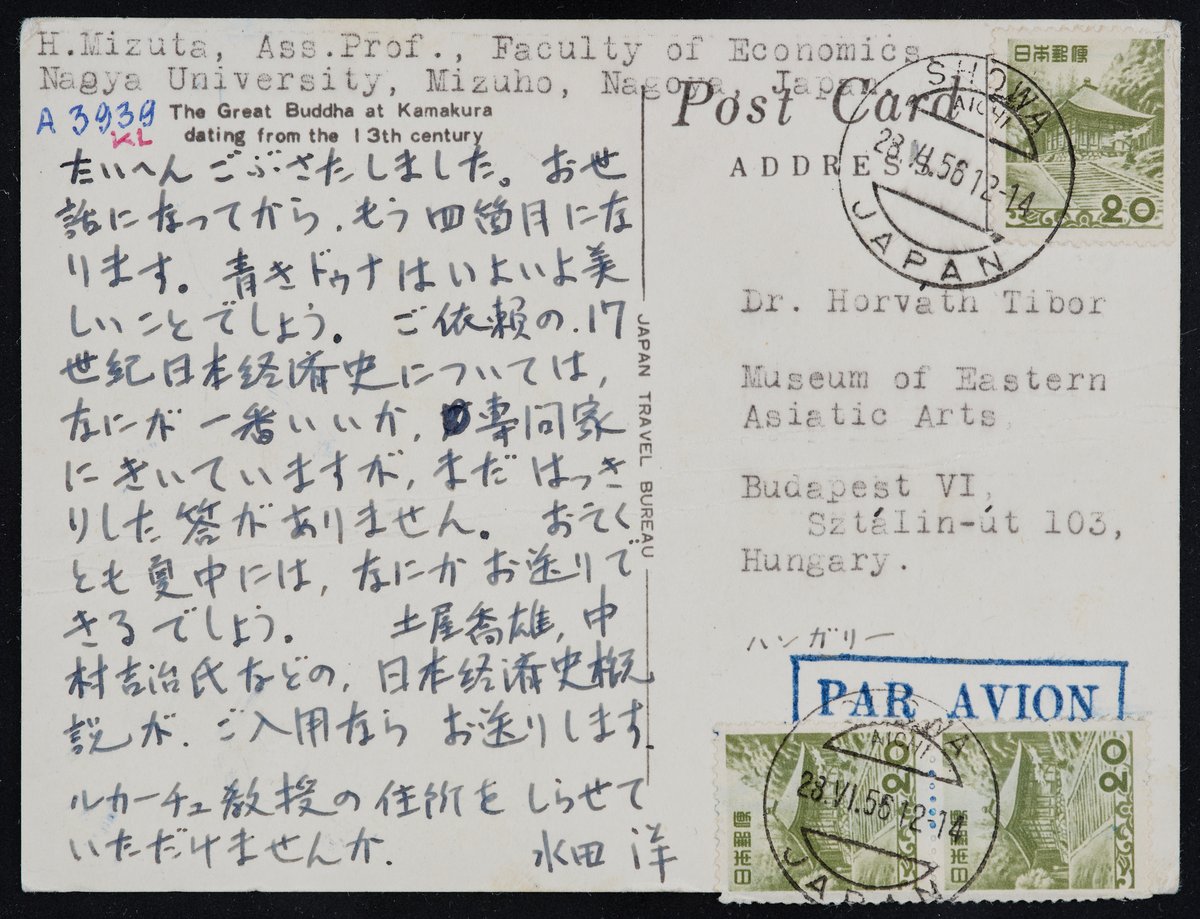 H.Mizuta, Ass.Prof., Faculty of Economics
Nagya University, Mizuho, Nagoya, Japan.
A 3939
KL
The Great Buddha at Kamakura
dating from the 13th century
たいへんごぶさたしました。お世
話になってから、もう四箇月にな
ります。青きドゥナはいよいよ美
しいことでしょう。ご依頼の、17
世紀日本経済史については、
なにが一番いいか、専門家
にきいていますが、まだはっき
りした答がありません。おそく
とも夏中には、なにかお送りで
きるでしょう。土屋喬雄、中
村吉治氏などの、日本経済史概
説が、ご入用ならお送りします。
ルカーチュ教授の住所をしらせて
いただけませんか。水田 洋
JAPAN TRAVEL BUREAU
Post Card
ADDRESS
日本郵便
20
SHOWA
AICHI
28.VI.56 12-14
JAPAN
Dr. Horváth Tibor
Museum of Eastern
Asiatic Arts,
Budapest VI,
Sztálin-út 103,
Hungary.
ハンガリー
PAR AVION
日本郵便
20
日本郵便
20
SHOWA
AICHI
28.VI.56 12-14
JAPAN